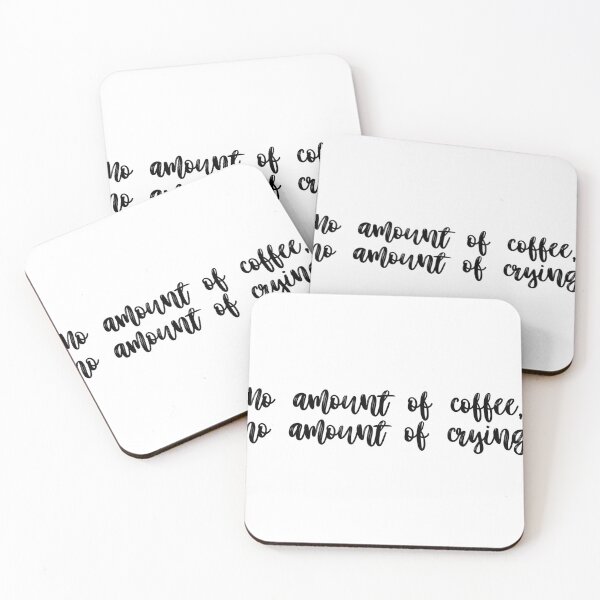 no amount of
no of
no amount of coffee,
no amount of crying
no amount of coffee,
no amount of crying
no amount of coffee,
no amount of crying